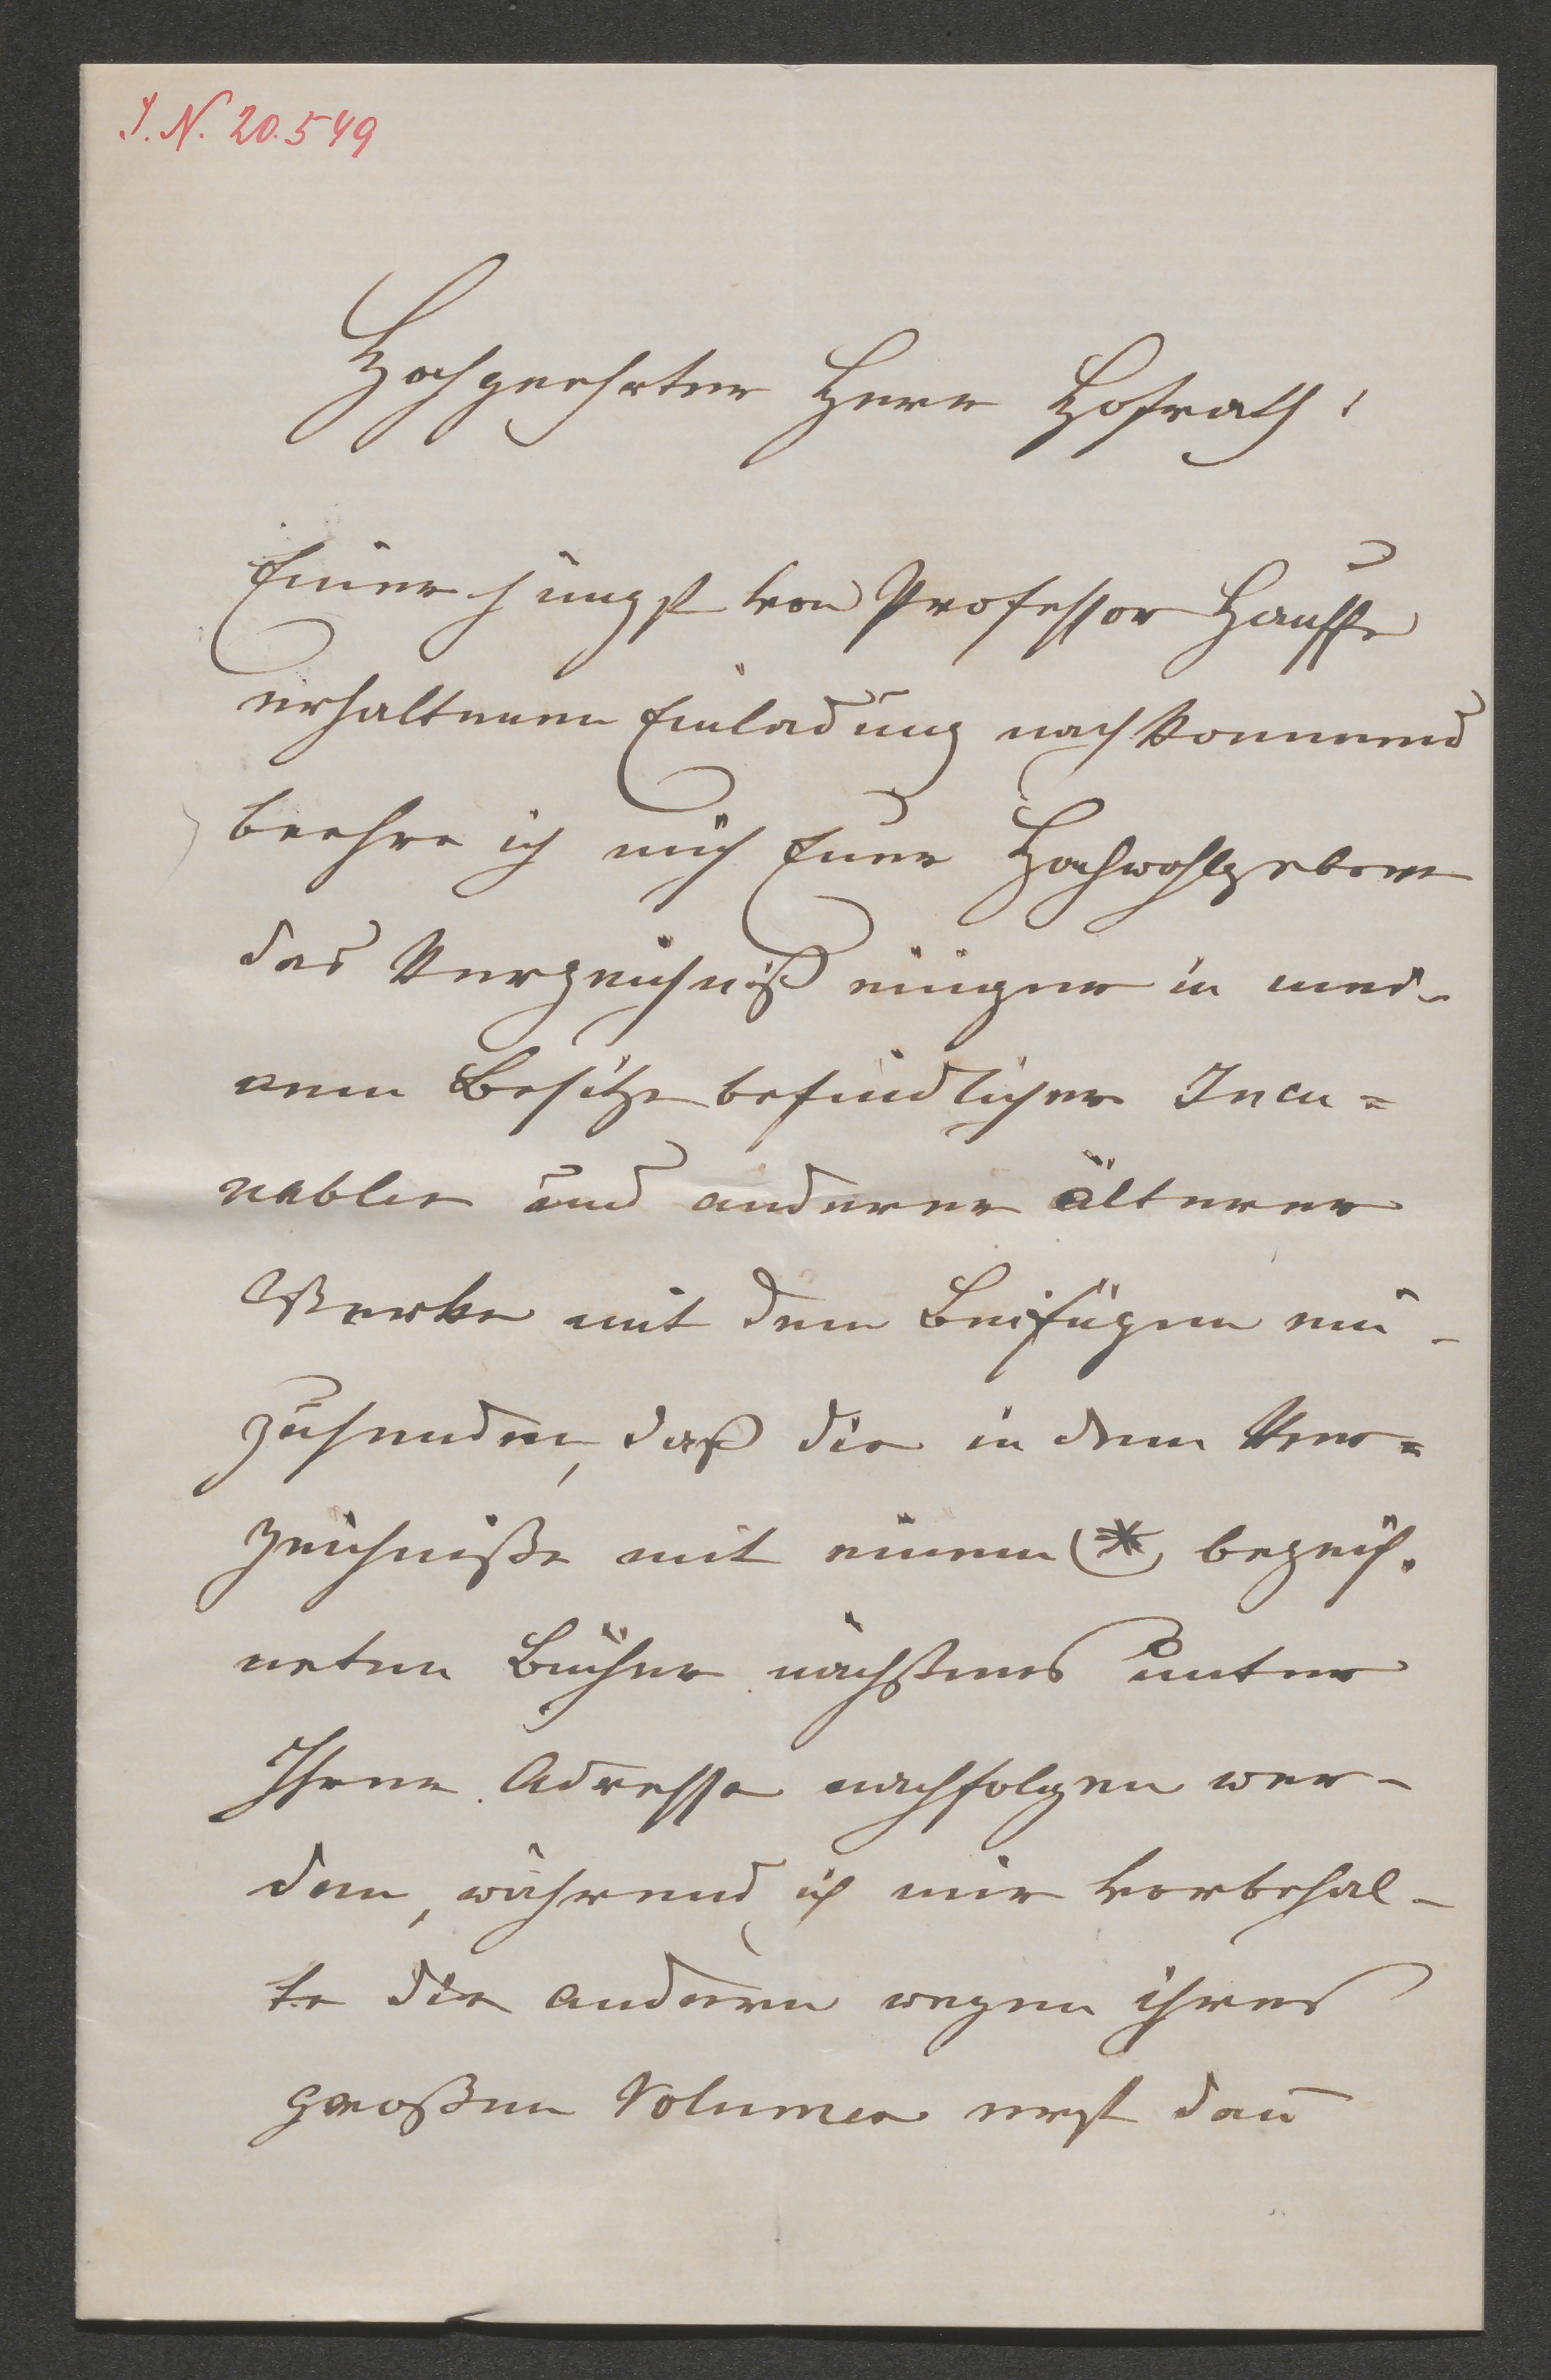 I. N. 20.549
Hochgeehrter Herr Hofrath!
Einer jüngst von Professor Hauffe
erhaltenen Einladung nachkommend
beehre ich mich Euer Hochwohlgeboren
das Verzeichniß einiger in mei-
nem Besitze befindlicher Incu=
nablen und anderer älterer
Werke mit dem Beifügen ein-
zusenden, daß die in dem Ver=
zeichniße mit einem * bezeich-
neten Bücher nächstens unter
Ihrer Adresse nachfolgen wer-
den, während ich mir vorbehal-
te die andern wegen ihres
großen Volumen erst dan̄